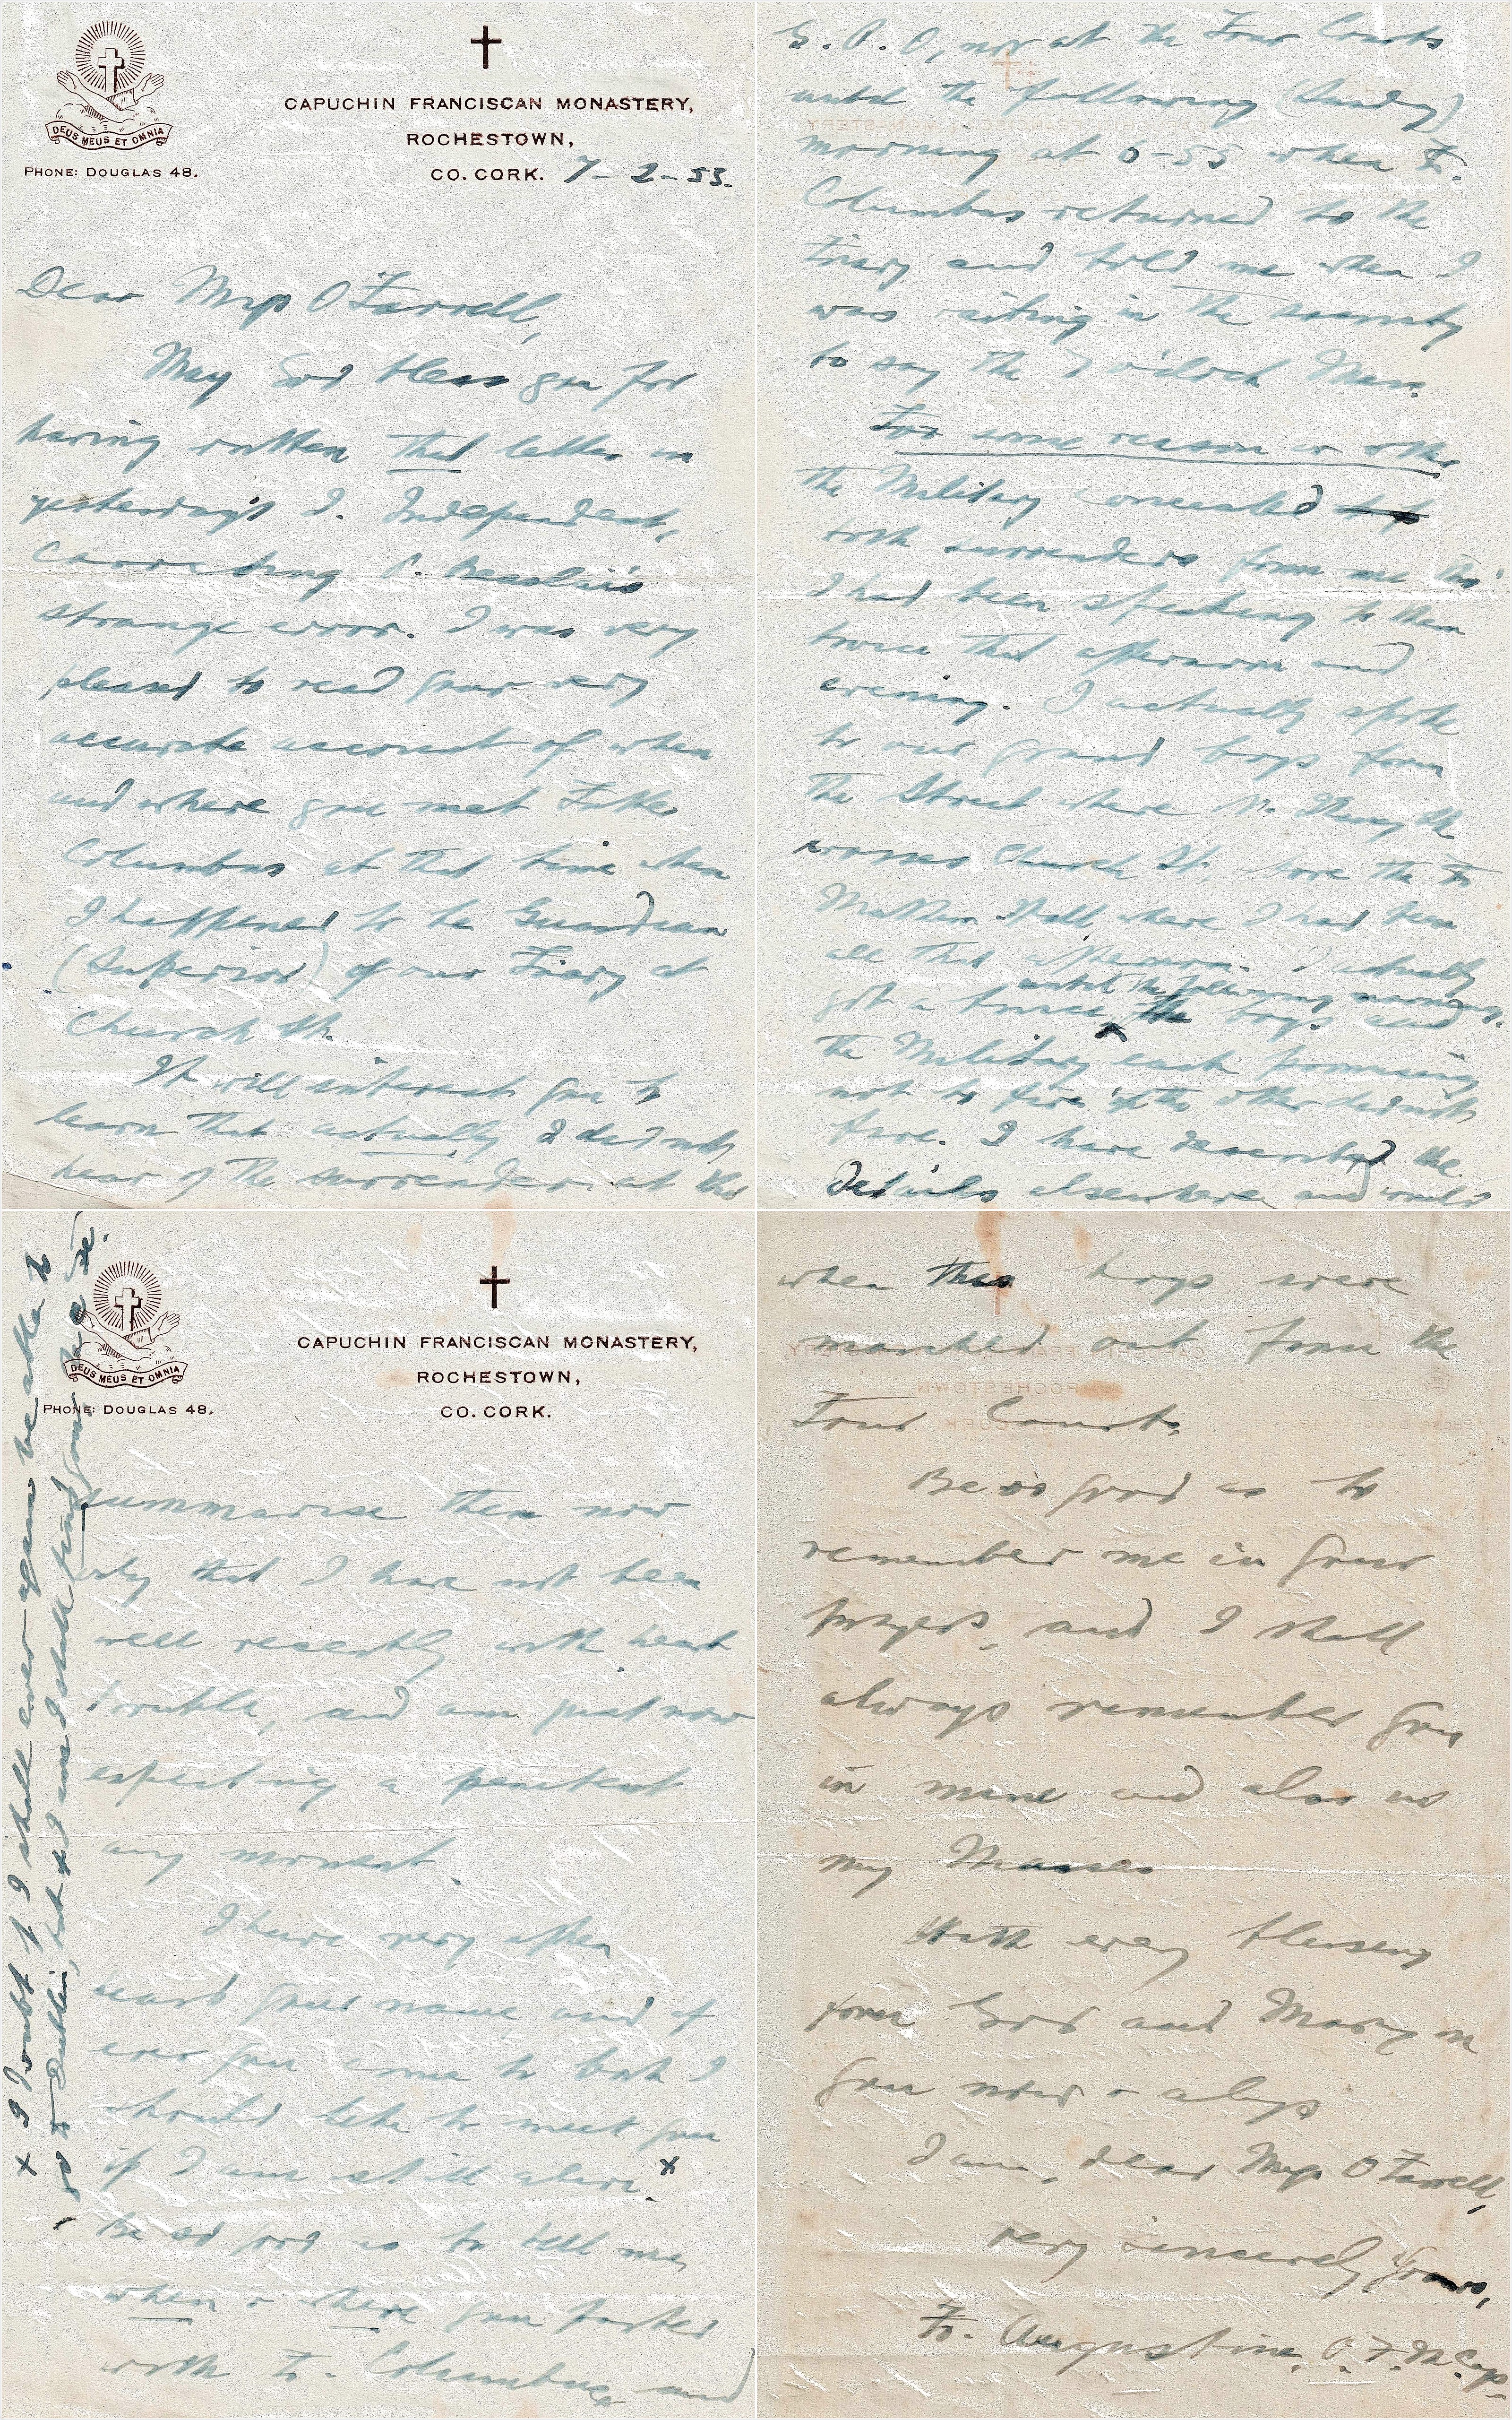 DEUS MEUS ET OMNIA
PHONE: DOUGLAS 48.
CAPUCHIN FRANCISCAN MONASTERY,
ROCHESTOWN,
CO. CORK. 7-2-53.
Dear Miss O'Farrell,
May God bless you for
having written that letter in
yesterday's I. Independent,
correcting P. Beaslai's
strange error. I was very
pleased to read your very
accurate account of when
and where you met Father
Columbus at that time when
I happened to be Guardian
(Superior) of our Friary at
Church St.
It will interest you to
learn that actually I did not
hear of the surrender at the
G.P.O, nor at the Four Courts
until the following (Sunday)
morning at 6-55 when Fr.
Columbus returned to the
Friary and told me when I
was waiting in the sacristy
to say the 7 o'clock Mass.
For some reason or other
the Military concealed
both surrenders from me tho'
I had been speaking to them
twice that afternoon and
evening. I actually spoke
to our grand boys from
the Street where N. Strand
crosses Church St., the Fr
Mathew Hall, where I had been
all that afternoon. I actually
got a truce until the following morning, the boys and
the Military each promising
not to fire if the other did not
fire. I have described the
details elsewhere and would
DEUS MEUS ET OMNIA
PHONE: DOUGLAS 48.
CAPUCHIN FRANCISCAN MONASTERY,
ROCHESTOWN,
CO. CORK.
summarise them now
only that I have not been
well recently with heart
trouble, and am just now
expecting a penitent
any moment.
I have very often
heard your name and if
ever you come to Cork I
should like to meet you
if I am still alive. x
Be so good as to tell me,
when & where you parted
with Fr. Columbus and
x I doubt if I shall ever again be able to
go to Dublin, but if I am I shall find your
when the boys were
marched out from the
Four Courts.
Be so good as to
remember me in your
prayers, and I shall
always remember you
in mine and also in
my Masses
With every blessing
from God and Mary on
you now & always
I am, dear Miss O'Farrell,
very sincerely yours,
Fr. Augustine, O.F.M.Cap.